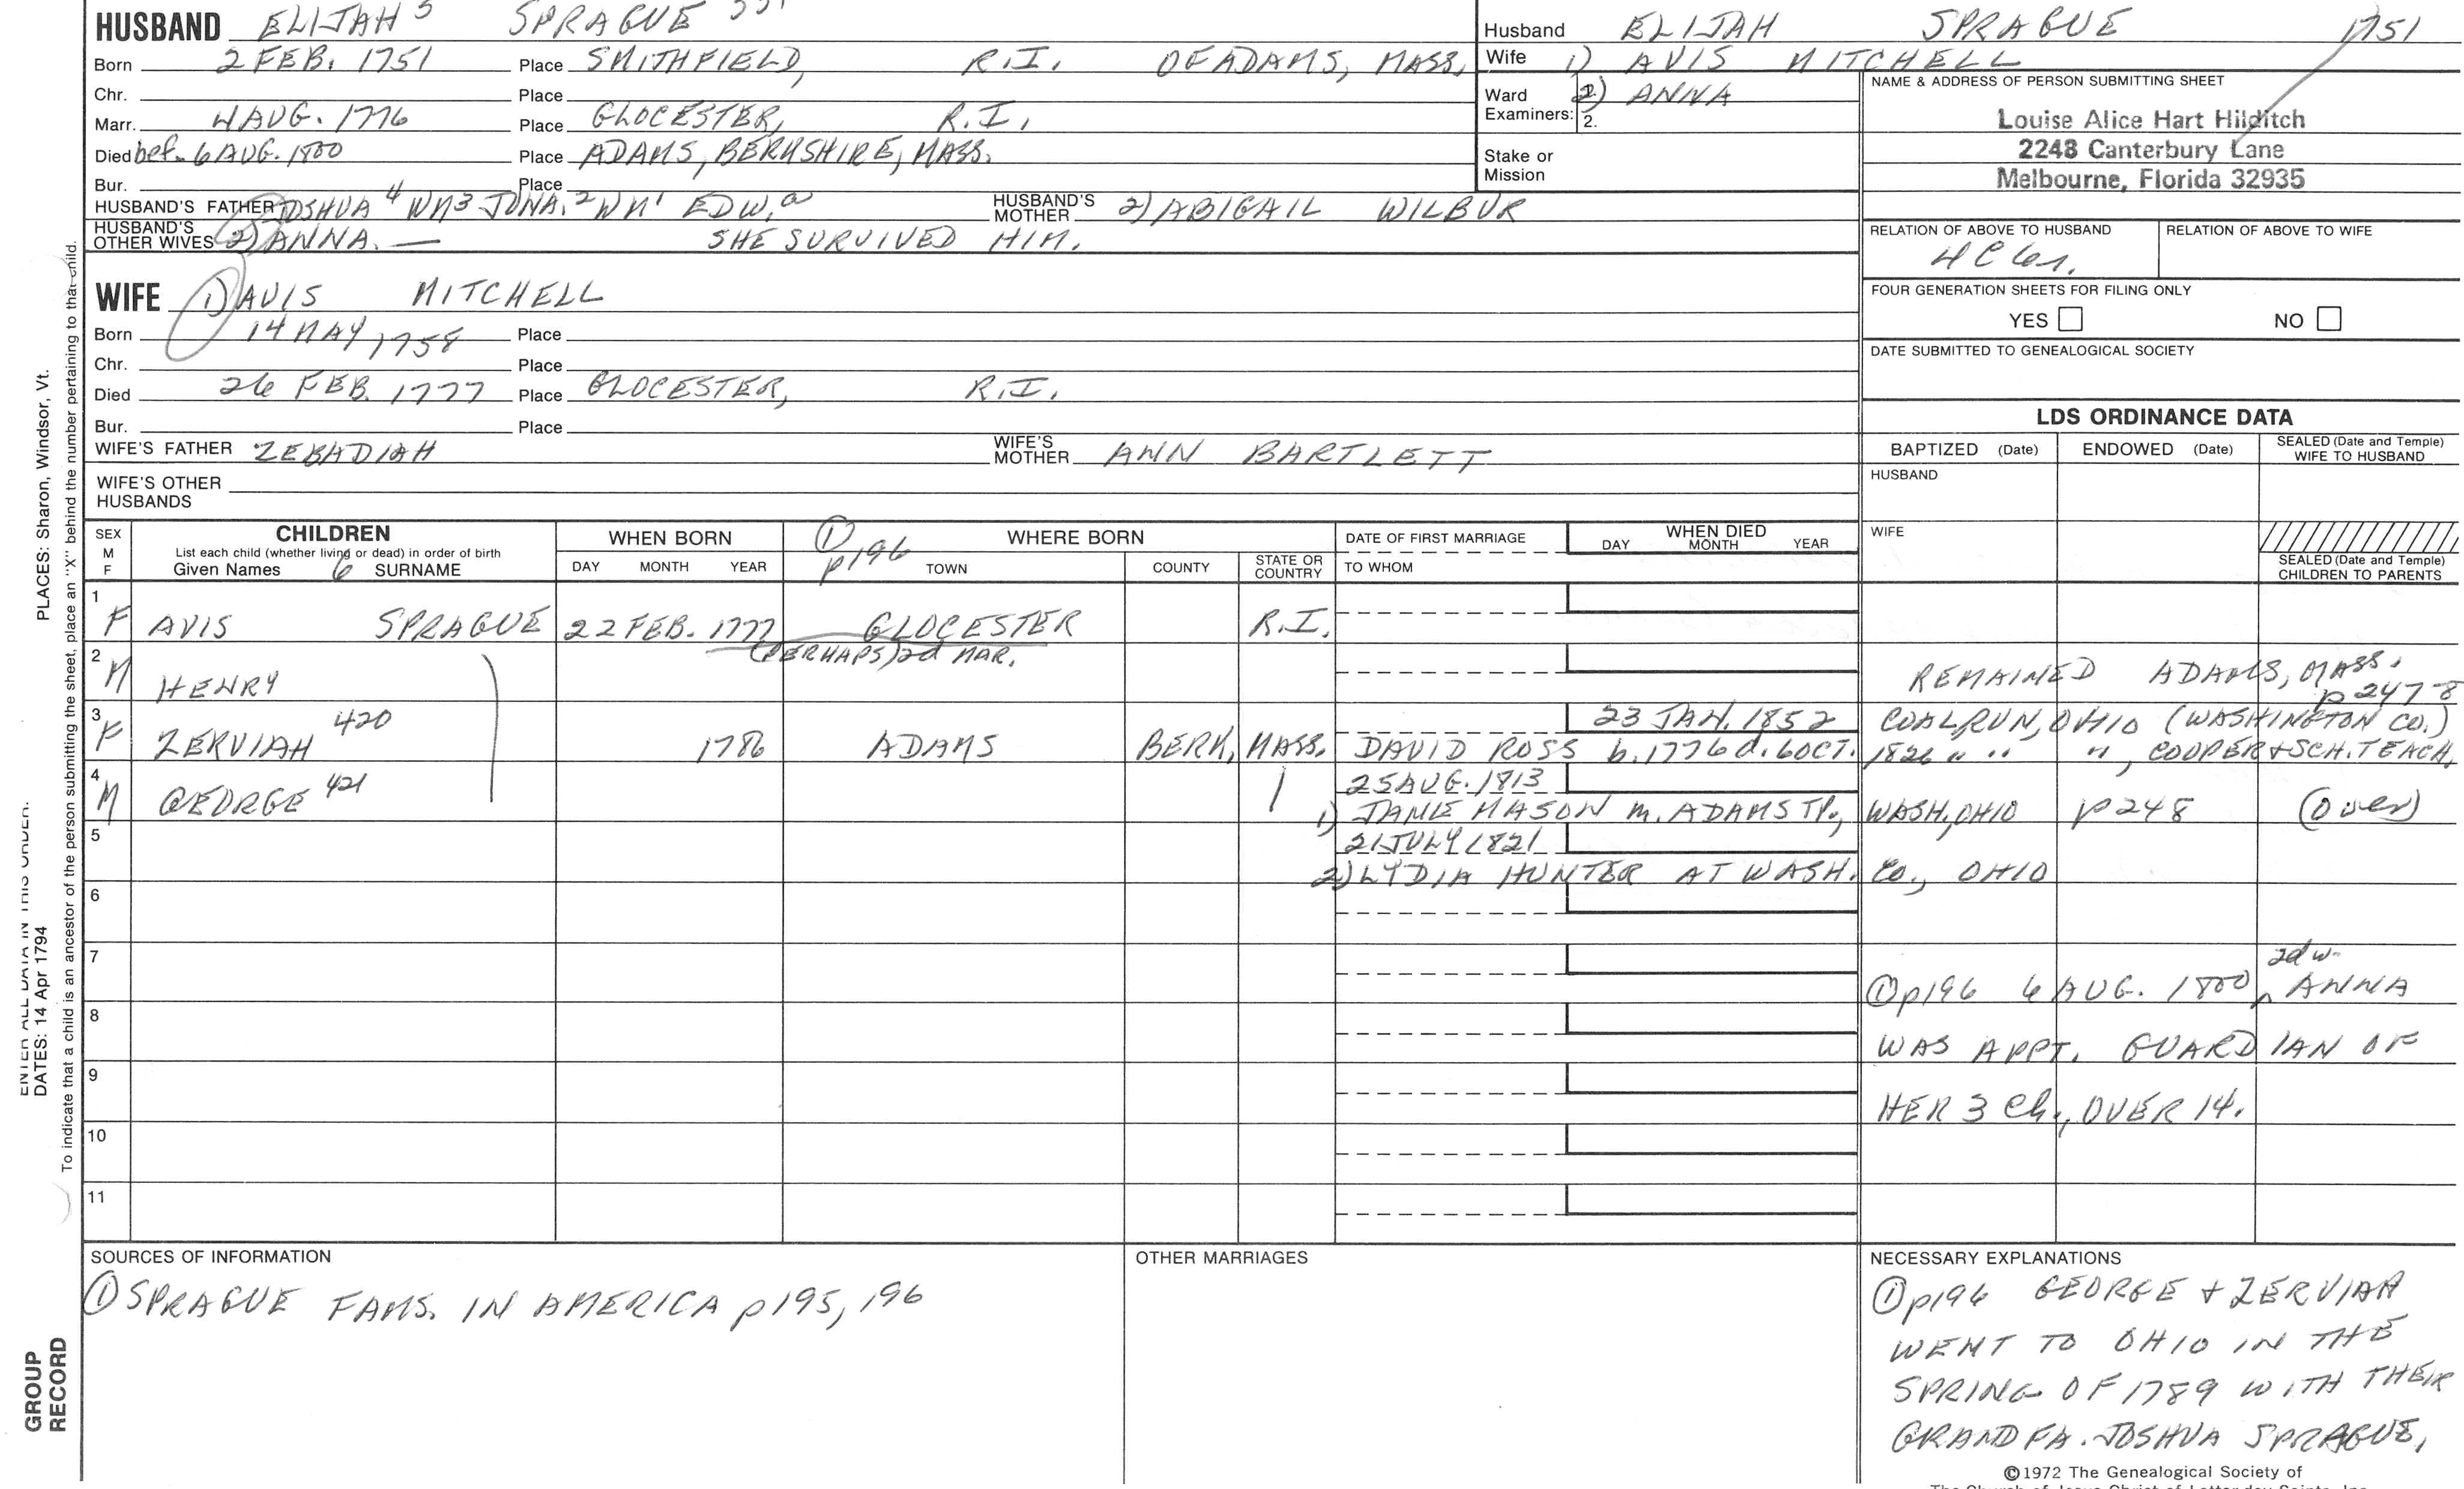 HUSBAND ELIJAH 5 SPRAGUE
Born 2 FEB. 1751 Place SMITHFIELD, R.I. OF ADAMS, MASS.
Chr. Place
Marr. 4 AUG. 1776 Place GLOCESTER, R.I.
Died bef. 6 AUG. 1800 Place ADAMS, BERKSHIRE, MASS.
Bur. Place
HUSBAND'S FATHER JOSHUA 4 WM3 JONA.2 WM1 EDW.a HUSBAND'S MOTHER 2) ABIGAIL WILBUR
HUSBAND'S OTHER WIVES 2) ANNA. — SHE SURVIVED HIM.
WIFE 1) AVIS MITCHELL
Born 14 MAY, 1758 Place
Chr. Place
Died 26 FEB. 1777 Place GLOCESTER, R.I.
Bur. Place
WIFE'S FATHER ZEBADIAH WIFE'S MOTHER ANN BARTLETT
WIFE'S OTHER HUSBANDS
Husband ELIJAH SPRAGUE 1751
Wife 1) AVIS MITCHELL
Ward Examiners: 2) ANNA
2.
Stake or Mission
NAME & ADDRESS OF PERSON SUBMITTING SHEET
Louise Alice Hart Hilditch
2248 Canterbury Lane
Melbourne, Florida 32935
RELATION OF ABOVE TO HUSBAND RELATION OF ABOVE TO WIFE
4C 6r.
FOUR GENERATION SHEETS FOR FILING ONLY
YES NO
DATE SUBMITTED TO GENEALOGICAL SOCIETY
LDS ORDINANCE DATA
BAPTIZED (Date) ENDOWED (Date) SEALED (Date and Temple) WIFE TO HUSBAND
HUSBAND
WIFE
SEALED (Date and Temple) CHILDREN TO PARENTS
SEX M F
CHILDREN
List each child (whether living or dead) in order of birth
Given Names 6 SURNAME
WHEN BORN
DAY MONTH YEAR
① p196
WHERE BORN
TOWN COUNTY STATE OR COUNTRY
DATE OF FIRST MARRIAGE
TO WHOM
WHEN DIED
DAY MONTH YEAR
1 F AVIS SPRAGUE 22 FEB. 1777 GLOCESTER R.I.
(PERHAPS) 2d MAR.
2 M HENRY REMAINED ADAMS, MASS.
p 247-8
3 F ZERVIAH 420 1786 ADAMS BERK, MASS. 23 JAN. 1852 COALRUN, OHIO (WASHINGTON CO.)
DAVID ROSS b. 1776 d. 6 OCT. 1826 " " ", COOPER + SCH. TEACH.
4 M GEORGE 421 25 AUG. 1813
1) JANE MASON m. ADAMS TP., WASH, OHIO p248 (over)
5 21 JULY 1821
2) LYDIA HUNTER AT WASH. CO., OHIO
6
7
2d w.
① p196 6 AUG. 1800 ^ ANNA
8
WAS APPT. GUARDIAN OF
9
HER 3 Ch., OVER 14.
10
11
SOURCES OF INFORMATION
① SPRAGUE FAMS. IN AMERICA p195, 196
OTHER MARRIAGES
NECESSARY EXPLANATIONS
① p196 GEORGE + ZERVIAH
WENT TO OHIO IN THE
SPRING OF 1789 WITH THEIR
GRAND FA. JOSHUA SPRAGUE,
©1972 The Genealogical Society of
The Church of Jesus Christ of Latter-day Saints, Inc.
ENTER ALL DATA IN THIS ORDER:
DATES: 14 Apr 1794
PLACES: Sharon, Windsor, Vt.
To indicate that a child is an ancestor of the person submitting the sheet, place an "X" behind the number pertaining to that child.
GROUP RECORD